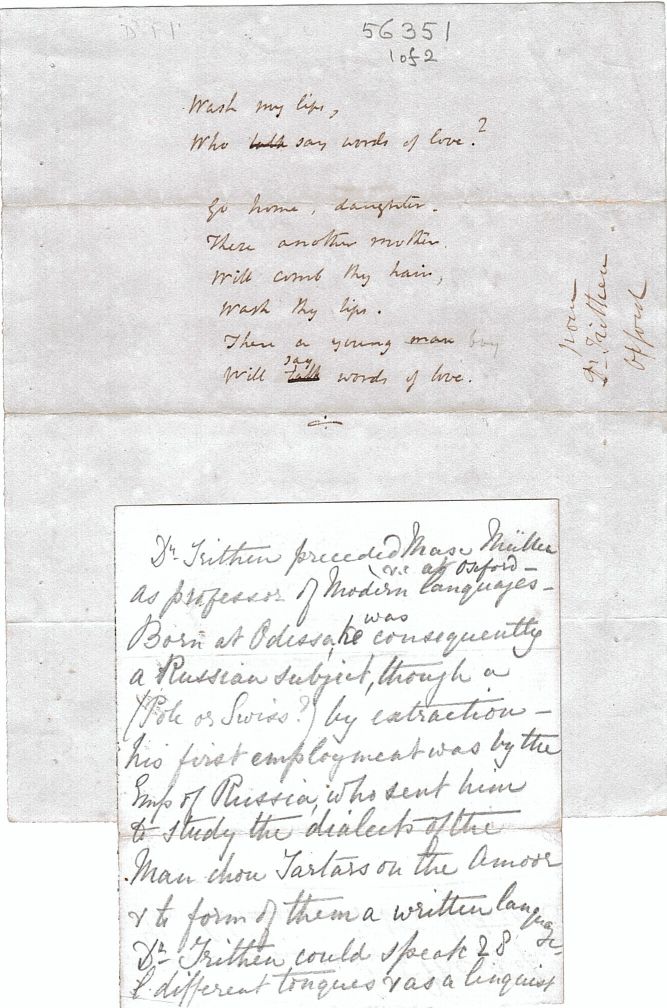 56351
1 of 2
Wash my lips,
Who talk say words of love?
Go home, daughter.
There another mother
Will comb thy hair,
Wash thy lips.
There a young man boy
say
Will talk words of love.
from
Dr. Trithen
Oxford
Dr. Trithen preceded Maxe Müller
at Oxford—
as professor of Modern languages—
was
Born at Odessa, he consequently
a Russian subject, though a
(Pole or Swiss?) by extraction—
his first employment was by the
Emp of Russia, who sent him
to study the dialects of the
Man chou Tartars on the Amoor
& to form of them a written language
Dr. Trithen could speak 28
different tongues & as a linguist